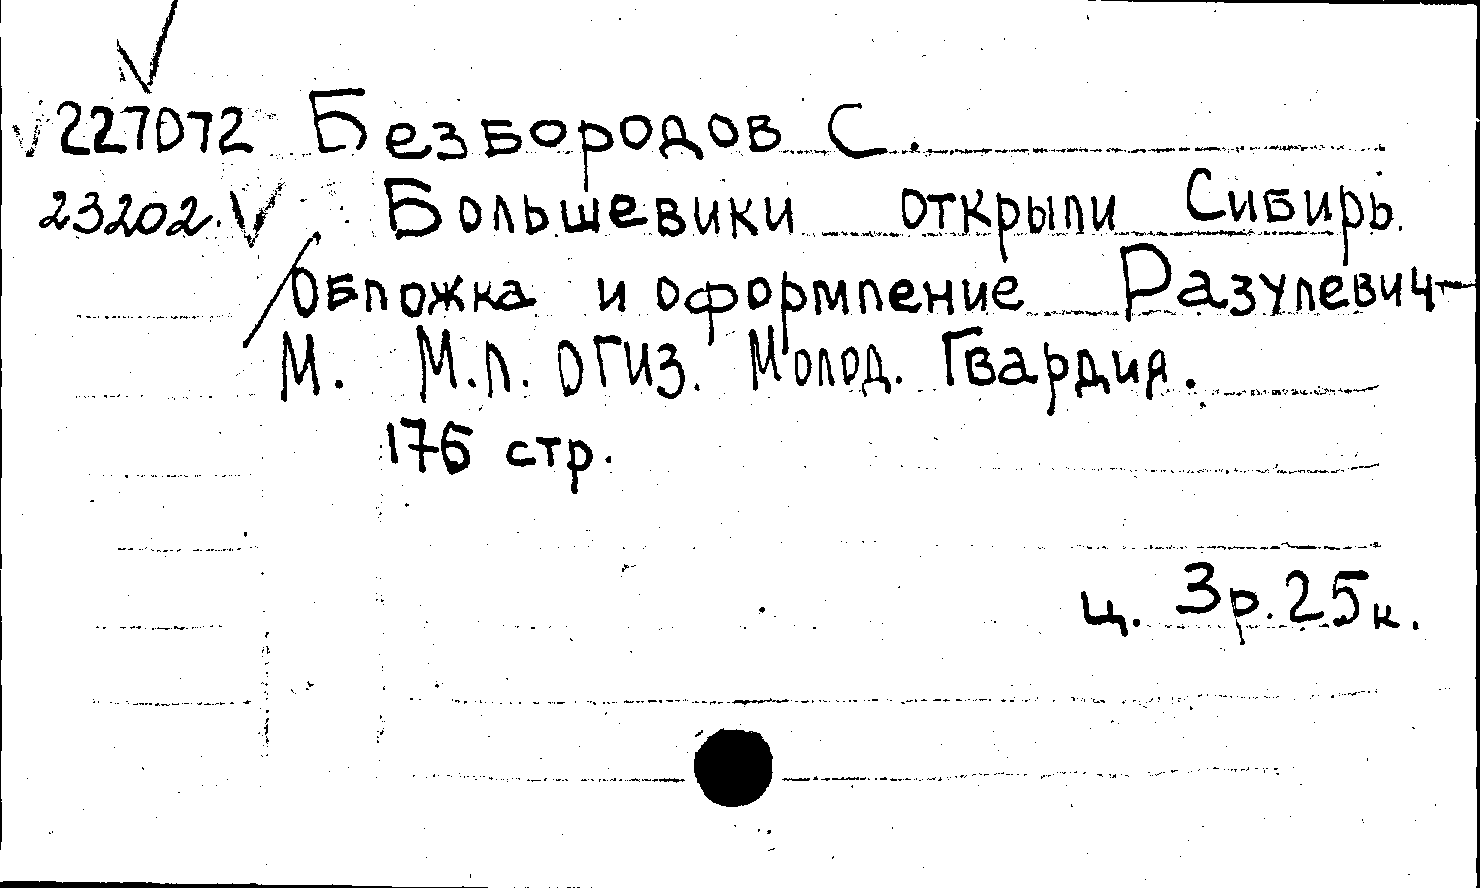 227072 Безбородов С.
23202. Большевики открыли Сибирь.
/Обложка и оформление Разулевич-
М. М.Л. ОГИЗ. Молод. Гвардия.
176 стр.
ц. 3р.25к.